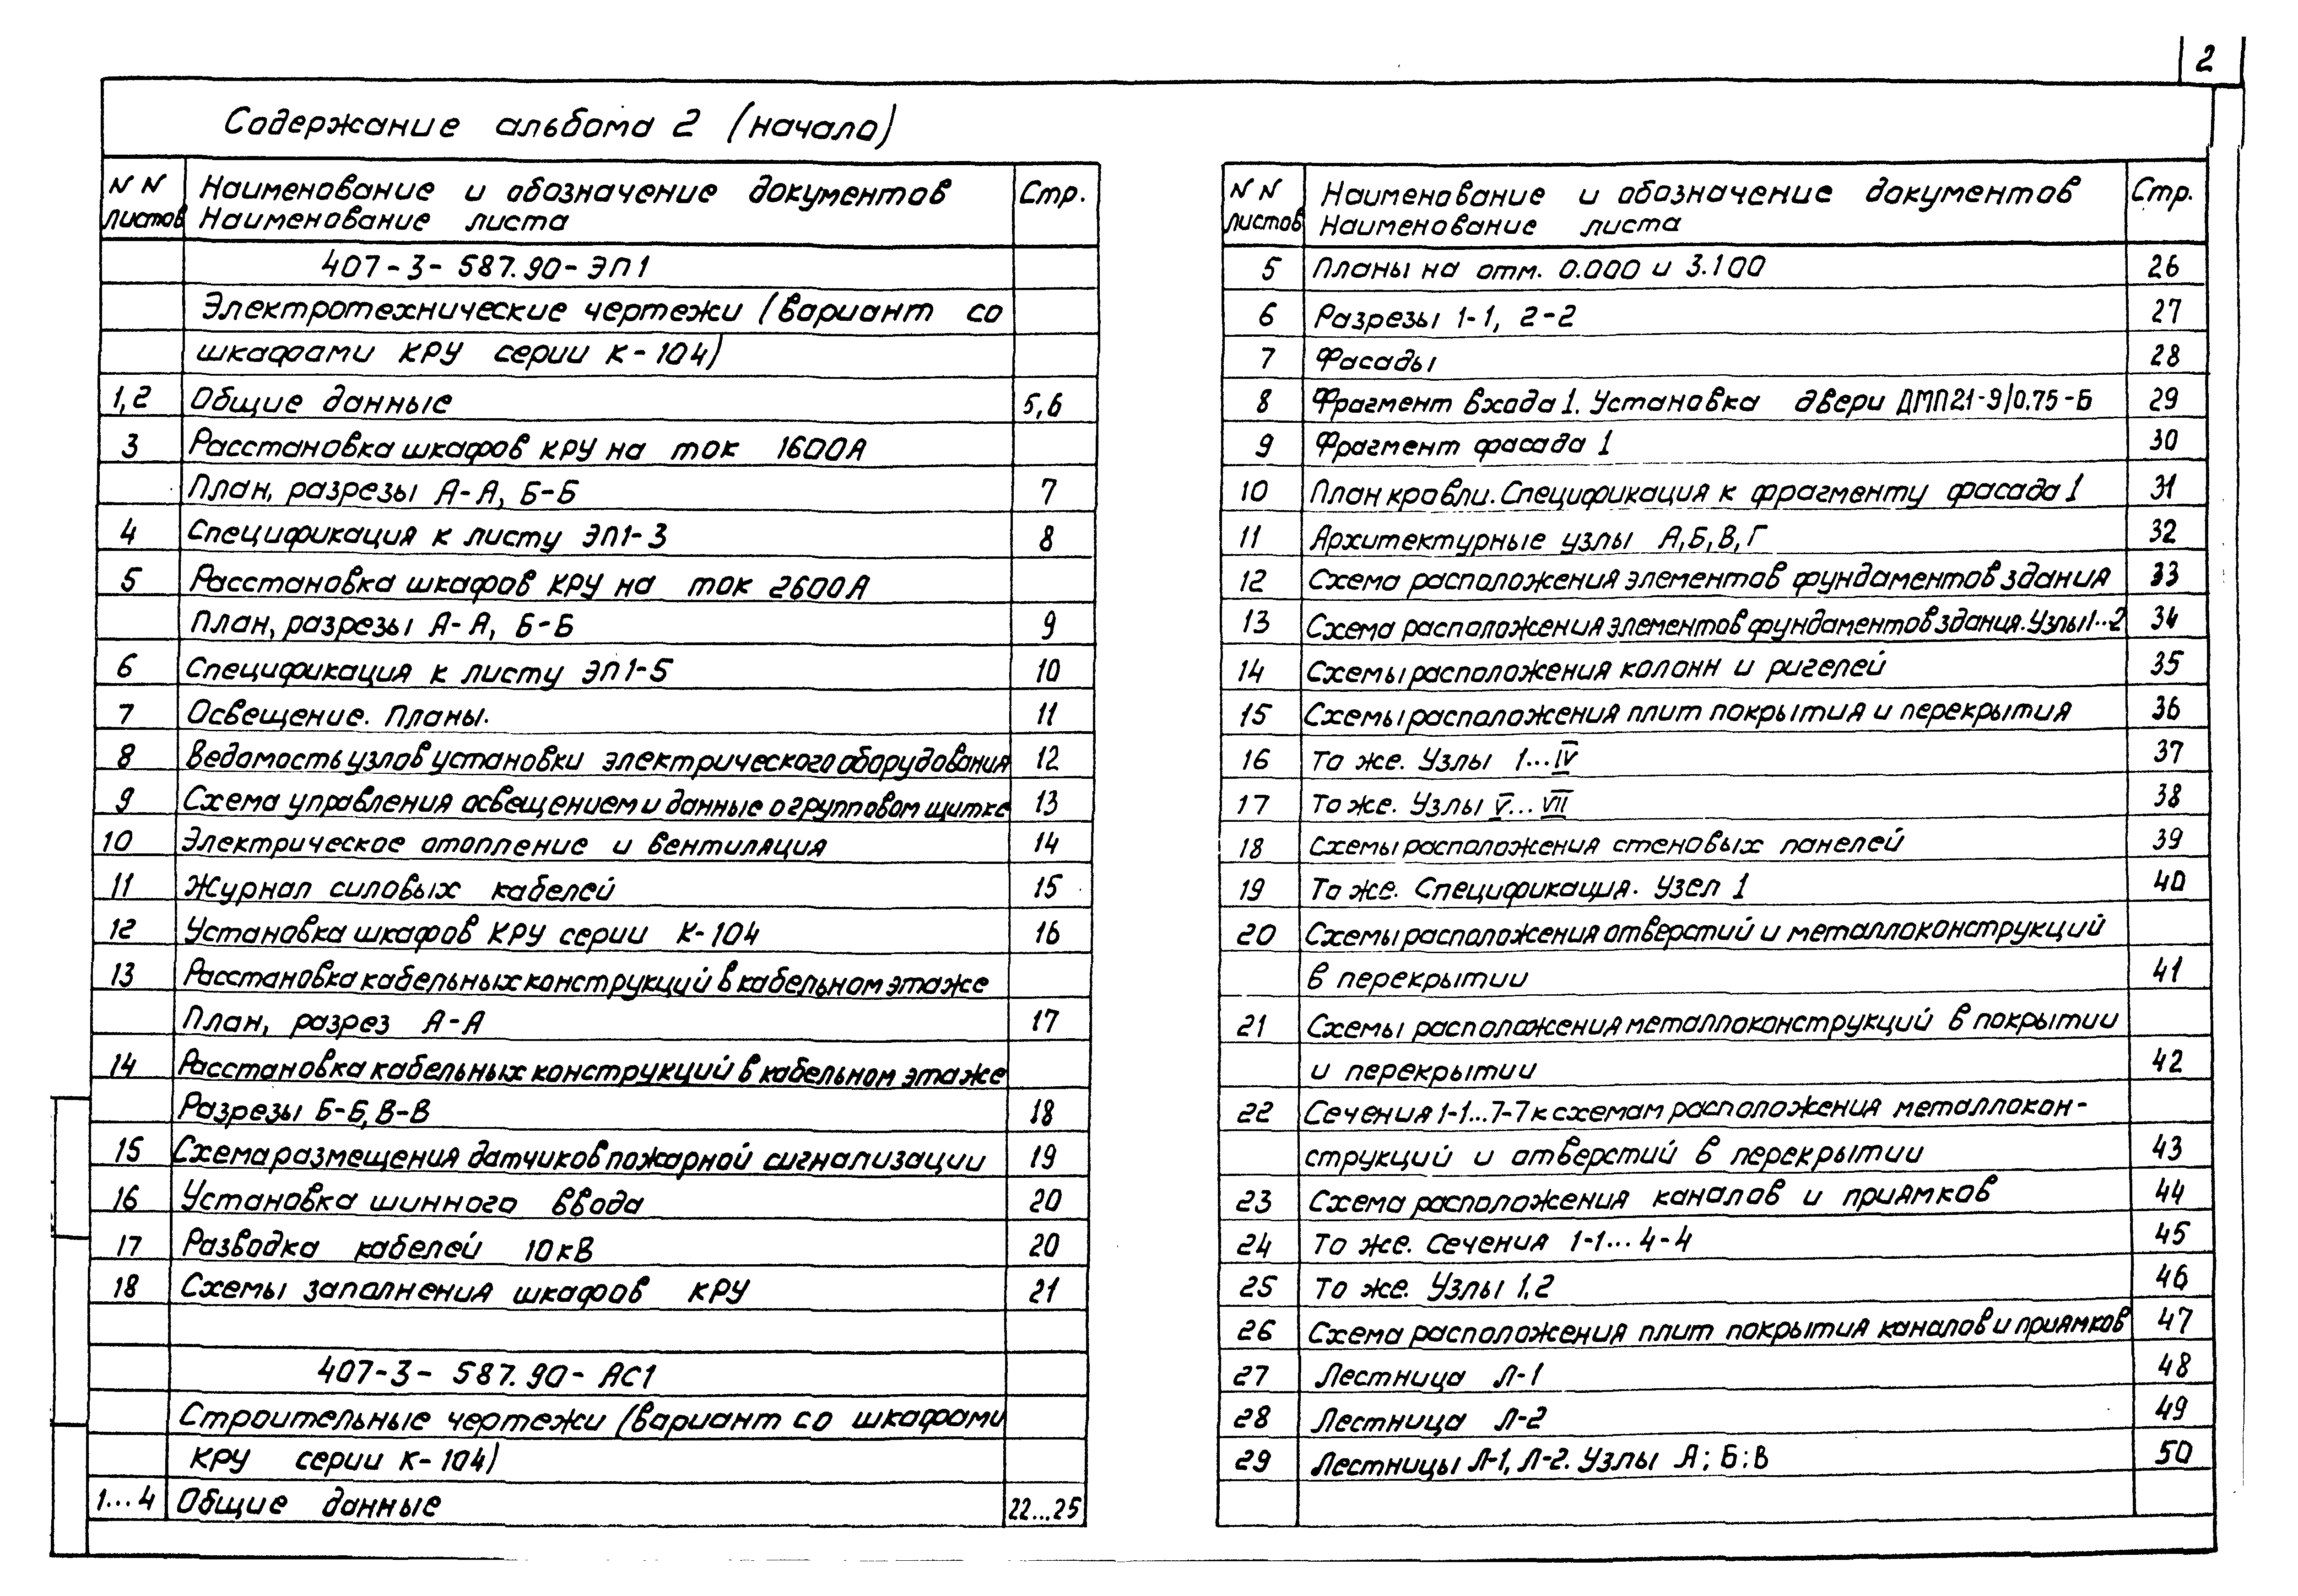 2
Содержание альбома 2 (начало)
NN листов Наименование и обозначение документов Наименование листа Стр.
407-3-587.90-ЭП1
Электротехнические чертежи (вариант со
шкафами КРУ серии К-104)
1,2 Общие данные 5,6
3 Расстановка шкафов КРУ на ток 1600А
План, разрезы А-А, Б-Б 7
4 Спецификация к листу ЭП1-3 8
5 Расстановка шкафов КРУ на ток 2600А
План, разрезы А-А, Б-Б 9
6 Спецификация к листу ЭП1-5 10
7 Освещение. Планы. 11
8 Ведомость узлов установки электрического оборудования 12
9 Схема управления освещением и данные о групповом щитке 13
10 Электрическое отопление и вентиляция 14
11 Журнал силовых кабелей 15
12 Установка шкафов КРУ серии К-104 16
13 Расстановка кабельных конструкций в кабельном этаже
План, разрез А-А 17
14 Расстановка кабельных конструкций в кабельном этаже
Разрезы Б-Б, В-В 18
15 Схема размещения датчиков пожарной сигнализации 19
16 Установка шинного ввода 20
17 Разводка кабелей 10кВ 20
18 Схемы заполнения шкафов КРУ 21
407-3-587.90-АС1
Строительные чертежи (вариант со шкафами
КРУ серии К-104)
1...4 Общие данные 22...25
NN листов Наименование и обозначение документов Наименование листа Стр.
5 Планы на отм. 0.000 и 3.100 26
6 Разрезы 1-1, 2-2 27
7 Фасады 28
8 Фрагмент входа 1. Установка двери ДМП21-9/0.75-Б 29
9 Фрагмент фасада 1 30
10 План кровли. Спецификация к фрагменту фасада 1 31
11 Архитектурные узлы А,Б,В,Г 32
12 Схема расположения элементов фундаментов здания 33
13 Схема расположения элементов фундаментов здания. Узлы 1...2 34
14 Схемы расположения колонн и ригелей 35
15 Схемы расположения плит покрытия и перекрытия 36
16 То же. Узлы 1...IV 37
17 То же. Узлы V...VII 38
18 Схемы расположения стеновых панелей 39
19 То же. Спецификация. Узел 1 40
20 Схемы расположения отверстий и металлоконструкций
в перекрытии 41
21 Схемы расположения металлоконструкций в покрытии
и перекрытии 42
22 Сечения 1-1...7-7 к схемам расположения металлокон-
струкций и отверстий в перекрытии 43
23 Схема расположения каналов и приямков 44
24 То же. Сечения 1-1...4-4 45
25 То же. Узлы 1,2 46
26 Схема расположения плит покрытия каналов и приямков 47
27 Лестница Л-1 48
28 Лестница Л-2 49
29 Лестницы Л-1, Л-2. Узлы А; Б; В 50